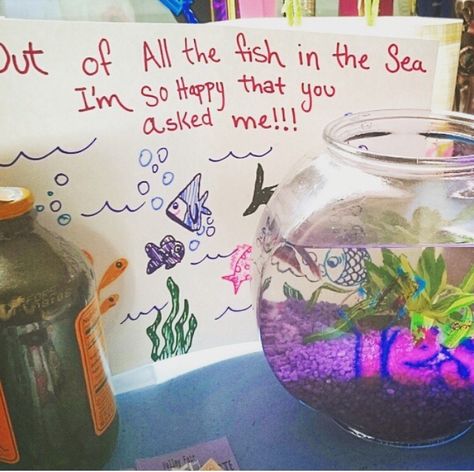 Out of All the fish in the Sea
I'm so Happy that you
asked me!!!
Yes
Valley Fair